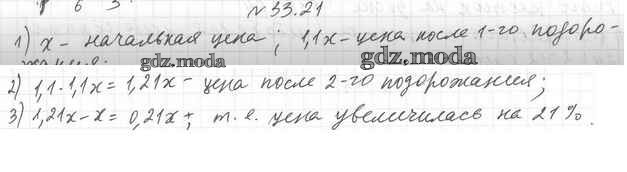 №33.21
1) x – начальная цена; 1,1x – цена после 1-го подоро-
жания;
gdz.moda gdz.moda
2) 1,1·1,1x = 1,21x – цена после 2-го подорожания;
3) 1,21x – x = 0,21x; т.е. цена увеличилась на 21%.